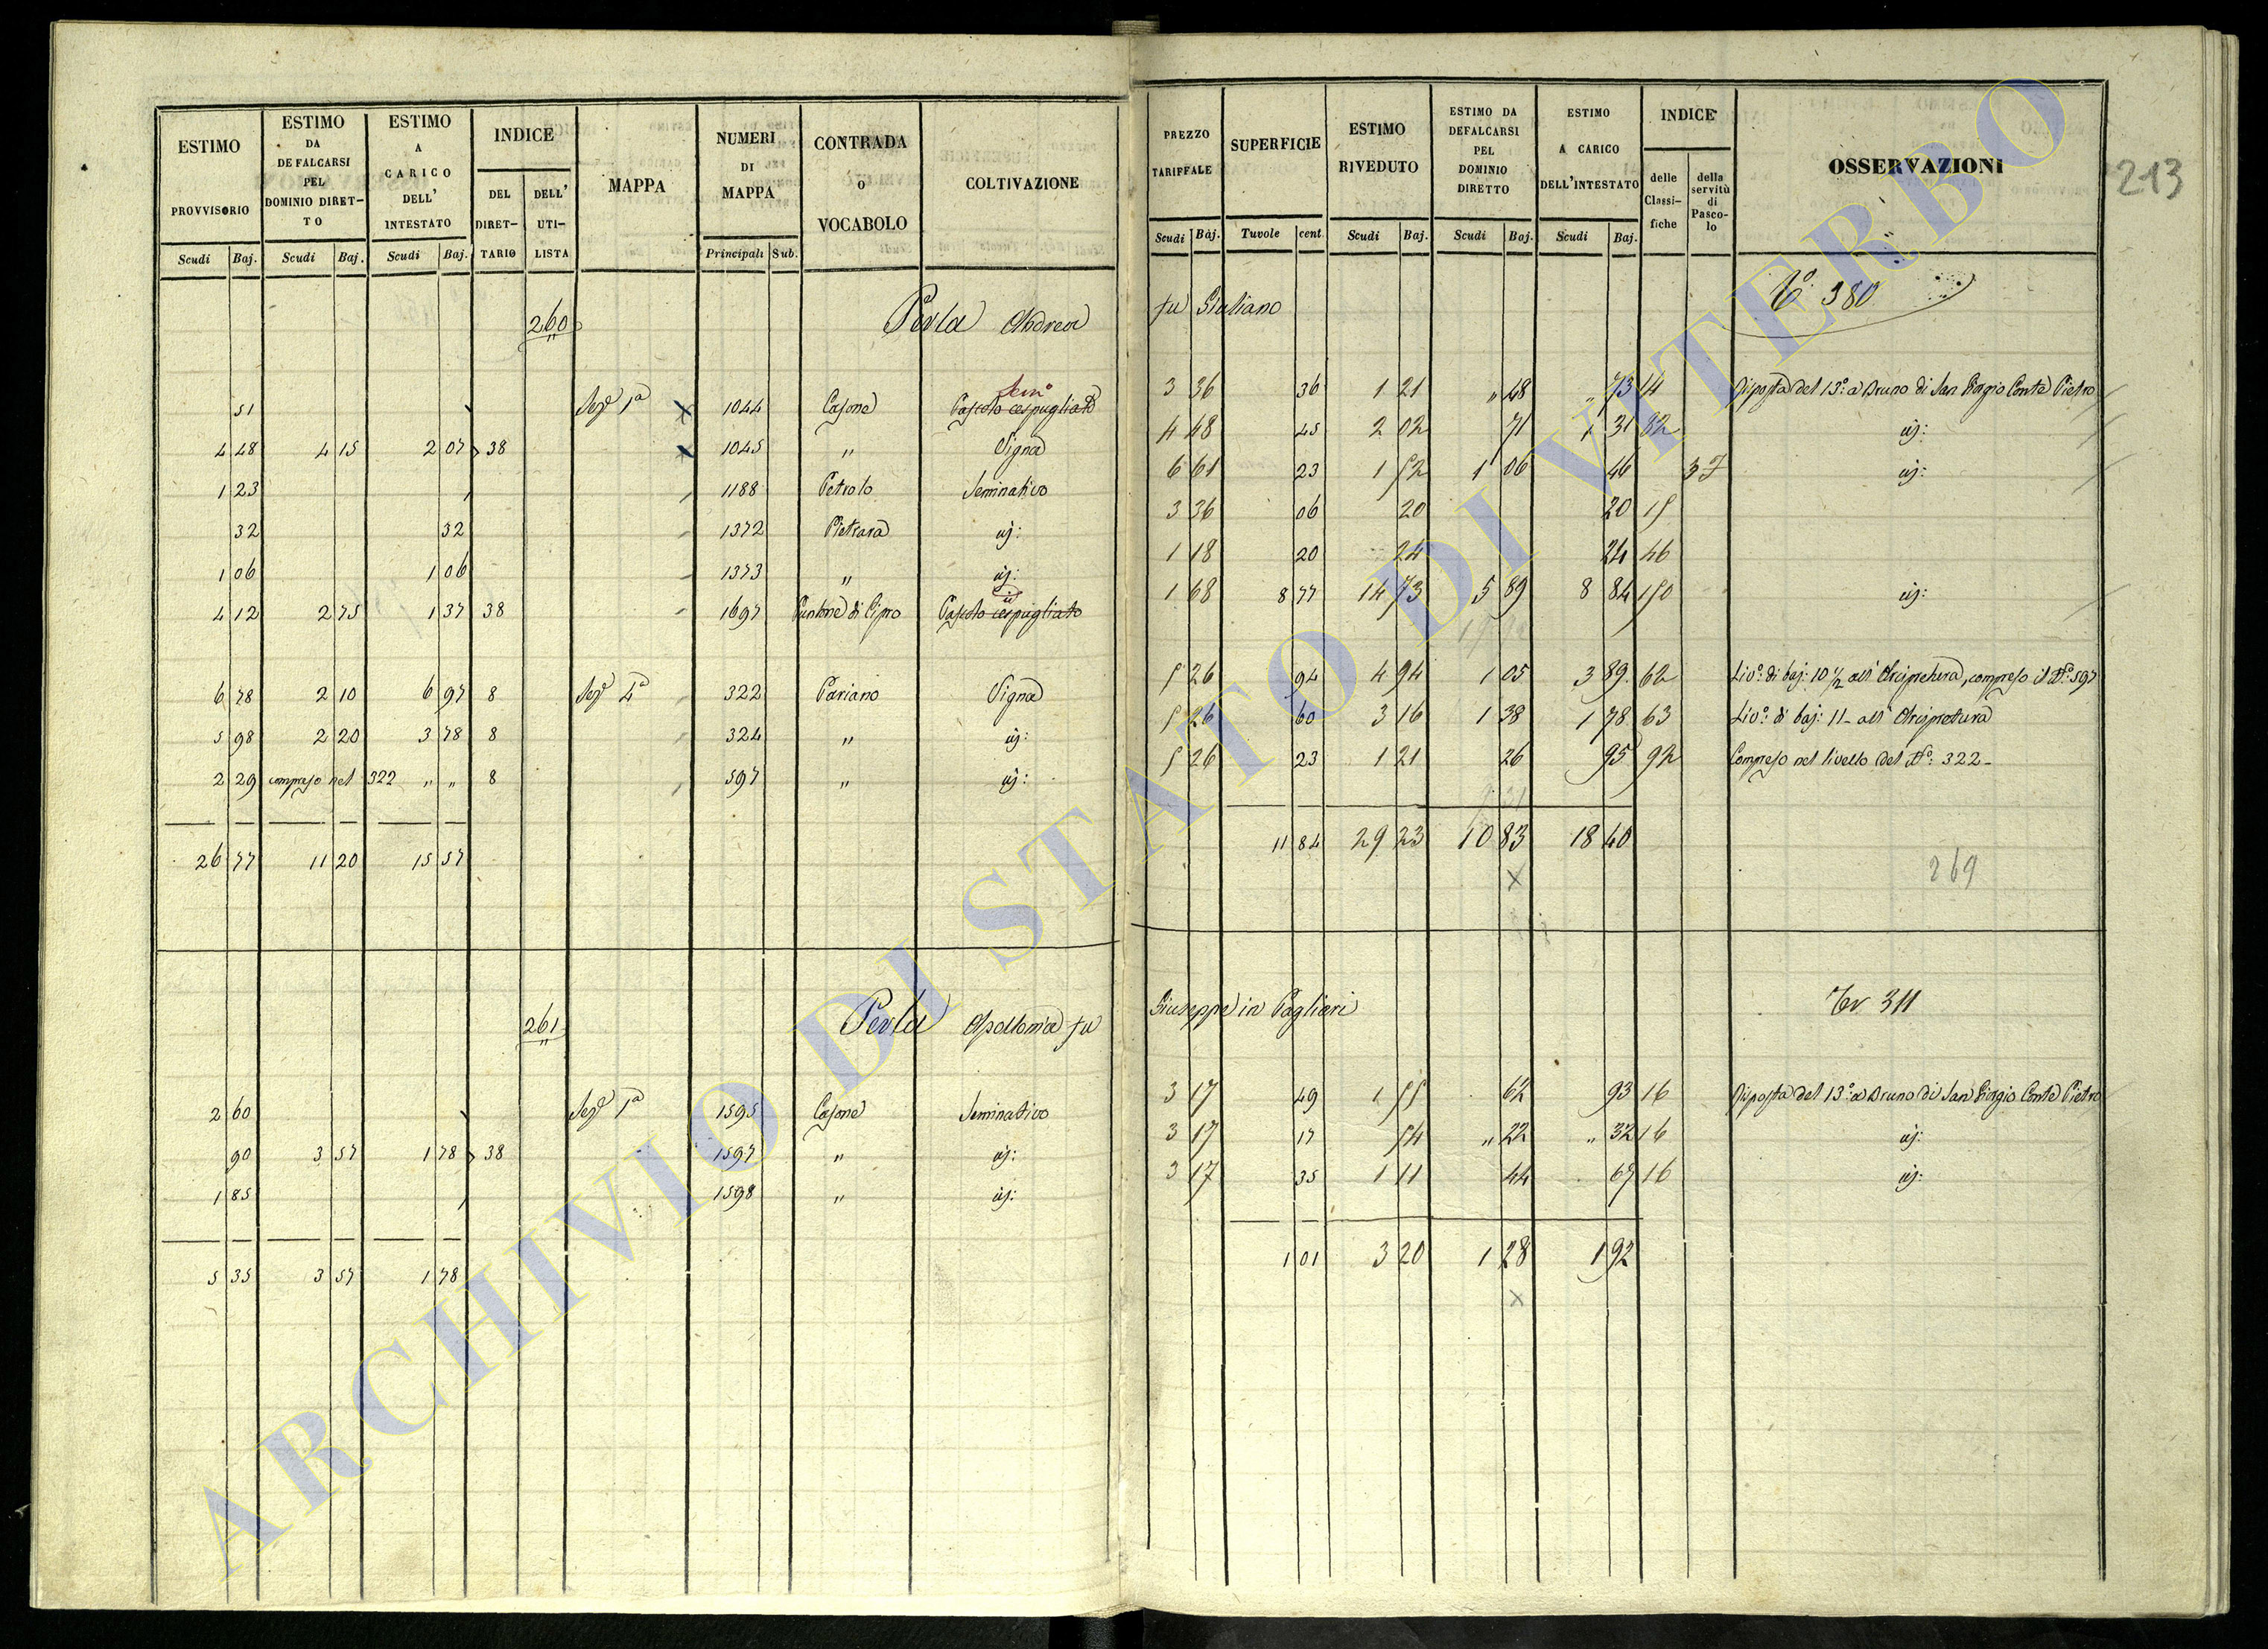 ESTIMO PROVVISORIO Scudi Baj.
ESTIMO DA DEFALCARSI PEL DOMINIO DIRET-TO Scudi Baj.
ESTIMO A CARICO DELL' INTESTATO Scudi Baj.
INDICE DEL DIRET-TARIO DELL' UTI-LISTA
MAPPA
NUMERI DI MAPPA Principali Sub.
CONTRADA O VOCABOLO
COLTIVAZIONE
PREZZO TARIFFALE Scudi Baj.
SUPERFICIE Tavole cent.
ESTIMO RIVEDUTO Scudi Baj.
ESTIMO DA DEFALCARSI PEL DOMINIO DIRETTO Scudi Baj.
ESTIMO A CARICO DELL'INTESTATO Scudi Baj.
INDICE delle Classi-fiche della servitù di Pasco-lo
OSSERVAZIONI
213
260 Perla Andrea fu Giuliano 380
Sem.º
51 Sez.e 1a x 1044 Casone Pascolo cespugliato 3 36 36 1 21 " 48 " 73 14 Risposta del 13.º a Bruno di San Giorgio Conte Pietro
4 48 4 15 2 07 38 x 1045 " Vigna 4 48 45 2 02 71 1 31 82 id:
1 23 1188 Petrolo Seminativo 6 61 23 1 52 1 06 46 3 id:
32 32 1372 Pietrara id: 3 36 06 20 20 15
1 06 1 06 1373 " id: 1 18 20 24 24 46
4 12 2 75 1 37 38 1697 Puntone di Cipro Pascolo cespugliato 1 68 8 77 14 73 5 89 8 84 150 id:
6 78 2 10 6 97 8 Sez.e 4a 322 Pariano Vigna 5 26 94 4 94 1 05 3 89 62 Liv.º di baj: 10 1/2 all' Arcipretura, compreso il N.º 597
5 98 2 20 3 78 8 324 " id: 5 26 60 3 16 1 38 1 78 63 Liv.º di baj: 11 - all' Arcipretura
2 29 compreso nel 322 " " 8 597 " id: 5 26 23 1 21 26 95 92 Compreso nel livello del N.º 322 -
26 77 11 20 15 57 11 84 29 23 10 83 18 40
x
269
261 Perla Apollonia fu Giuseppe in Paglieri 311
2 60 Sez.e 1a 1595 Casone Seminativo 3 17 49 1 55 62 93 16 Risposta del 13.º a Bruno di San Giorgio Conte Pietro
90 3 57 1 78 38 1597 " id: 3 17 17 54 " 22 " 32 16 id:
1 85 1598 " id: 3 17 35 1 11 44 67 16 id:
5 35 3 57 1 78 1 01 3 20 1 28 1 92
x
ARCHIVIO DI STATO DI VITERBO